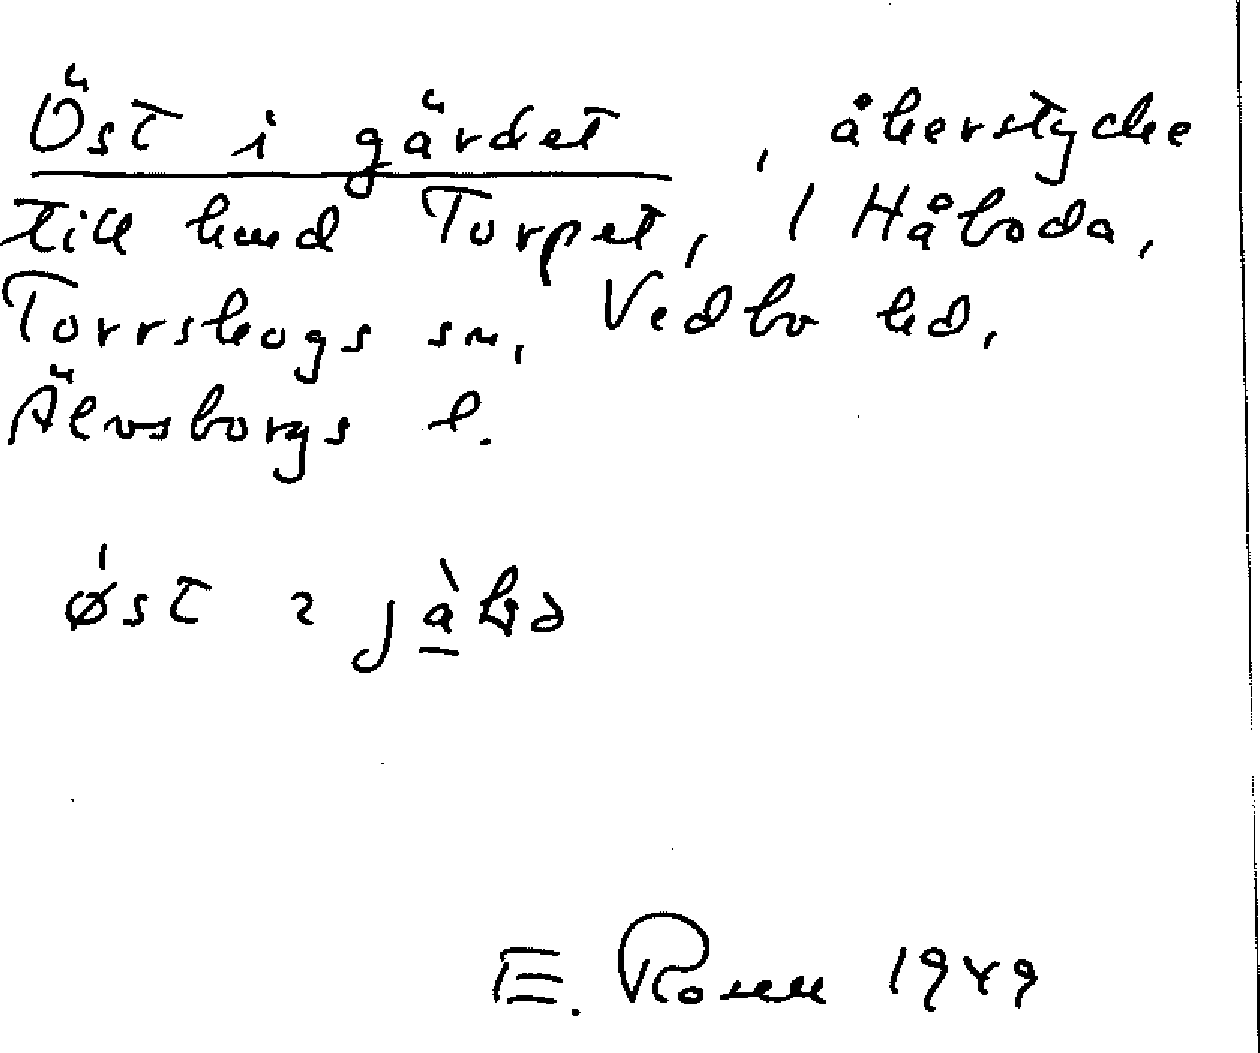 Öst i gärdet, åkerstycke
till hmd Torpet, 1 Håboda,
Torrskogs sn, Vedbo hd,
Älvsborgs l.
E. Rosell 1949